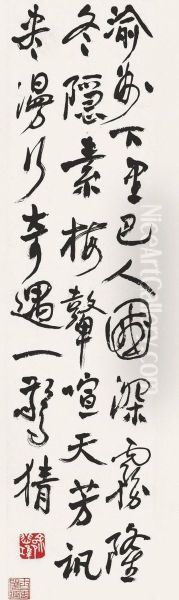 渝州下里巴人國深霧隆
冬隱素梅鼙喧天芳訊
漫行奇遇一驚猜
NiceArtGallery.com